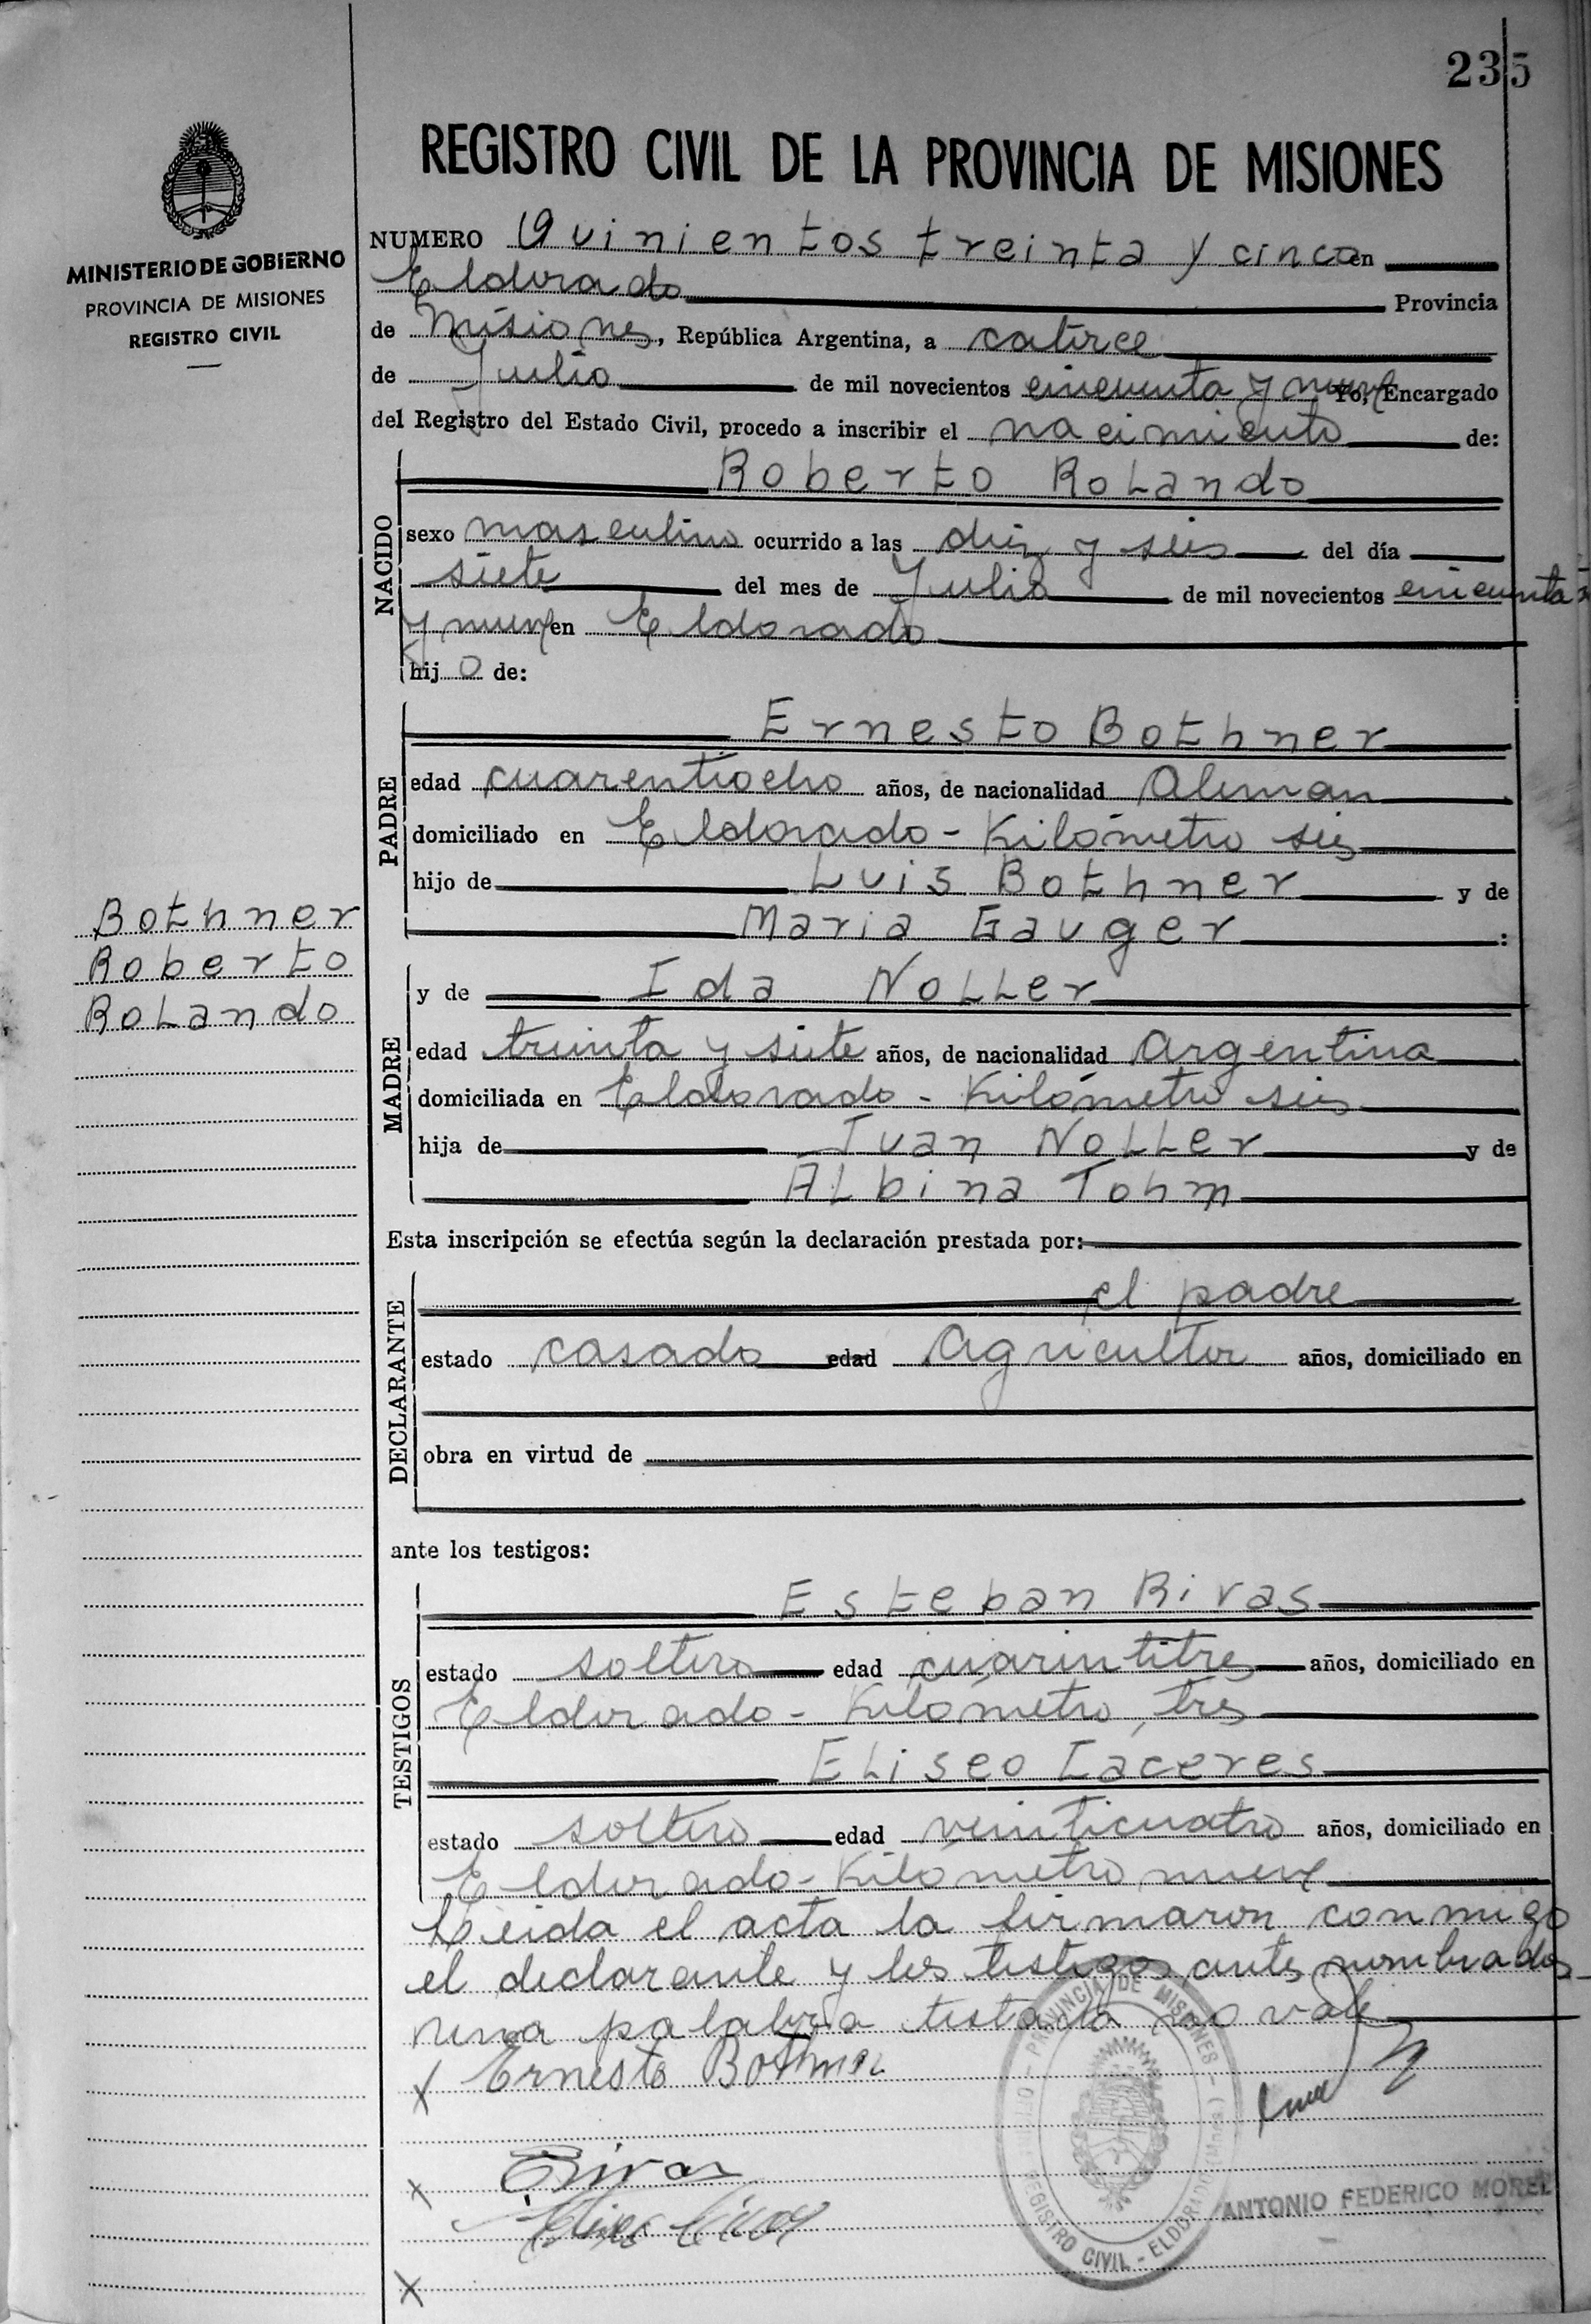 235
REGISTRO CIVIL DE LA PROVINCIA DE MISIONES
MINISTERIO DE GOBIERNO
PROVINCIA DE MISIONES
REGISTRO CIVIL
NUMERO Quinientos treinta y cinco en
Eldorado Provincia
de Misiones, República Argentina, a catorce
de Julio de mil novecientos cincuenta y nueve Yo, Encargado
del Registro del Estado Civil, procedo a inscribir el nacimiento de:
NACIDO
Roberto Rolando
sexo masculino ocurrido a las diez y seis del día
siete del mes de Julio de mil novecientos cincuenta
y nueve en Eldorado
hijo de:
PADRE
Ernesto Bothner
edad cuarentiocho años, de nacionalidad Aleman
domiciliado en Eldorado - Kilómetro seis
hijo de Luis Bothner y de
Maria Gauger :
Bothner
Roberto
Rolando
MADRE
y de Ida Noller
edad treinta y siete años, de nacionalidad Argentina
domiciliada en Eldorado - Kilómetro seis
hija de Juan Noller y de
Albina Tohm
Esta inscripción se efectúa según la declaración prestada por:
DECLARANTE
el padre
estado casado edad Agricultor años, domiciliado en
obra en virtud de
ante los testigos:
TESTIGOS
Esteban Rivas
estado soltero edad cuarentitres años, domiciliado en
Eldorado - Kilómetro tres
Eliseo Caceres
estado soltero edad veinticuatro años, domiciliado en
Eldorado - Kilómetro nueve
Leida el acta la firmaron conmigo
el declarante y los testigos antes nombrados
una palabra testada no vale
x Ernesto Bothner
x Rivas
x
PROVINCIA DE MISIONES
REGISTRO CIVIL - ELDORADO
ANTONIO FEDERICO MOREL